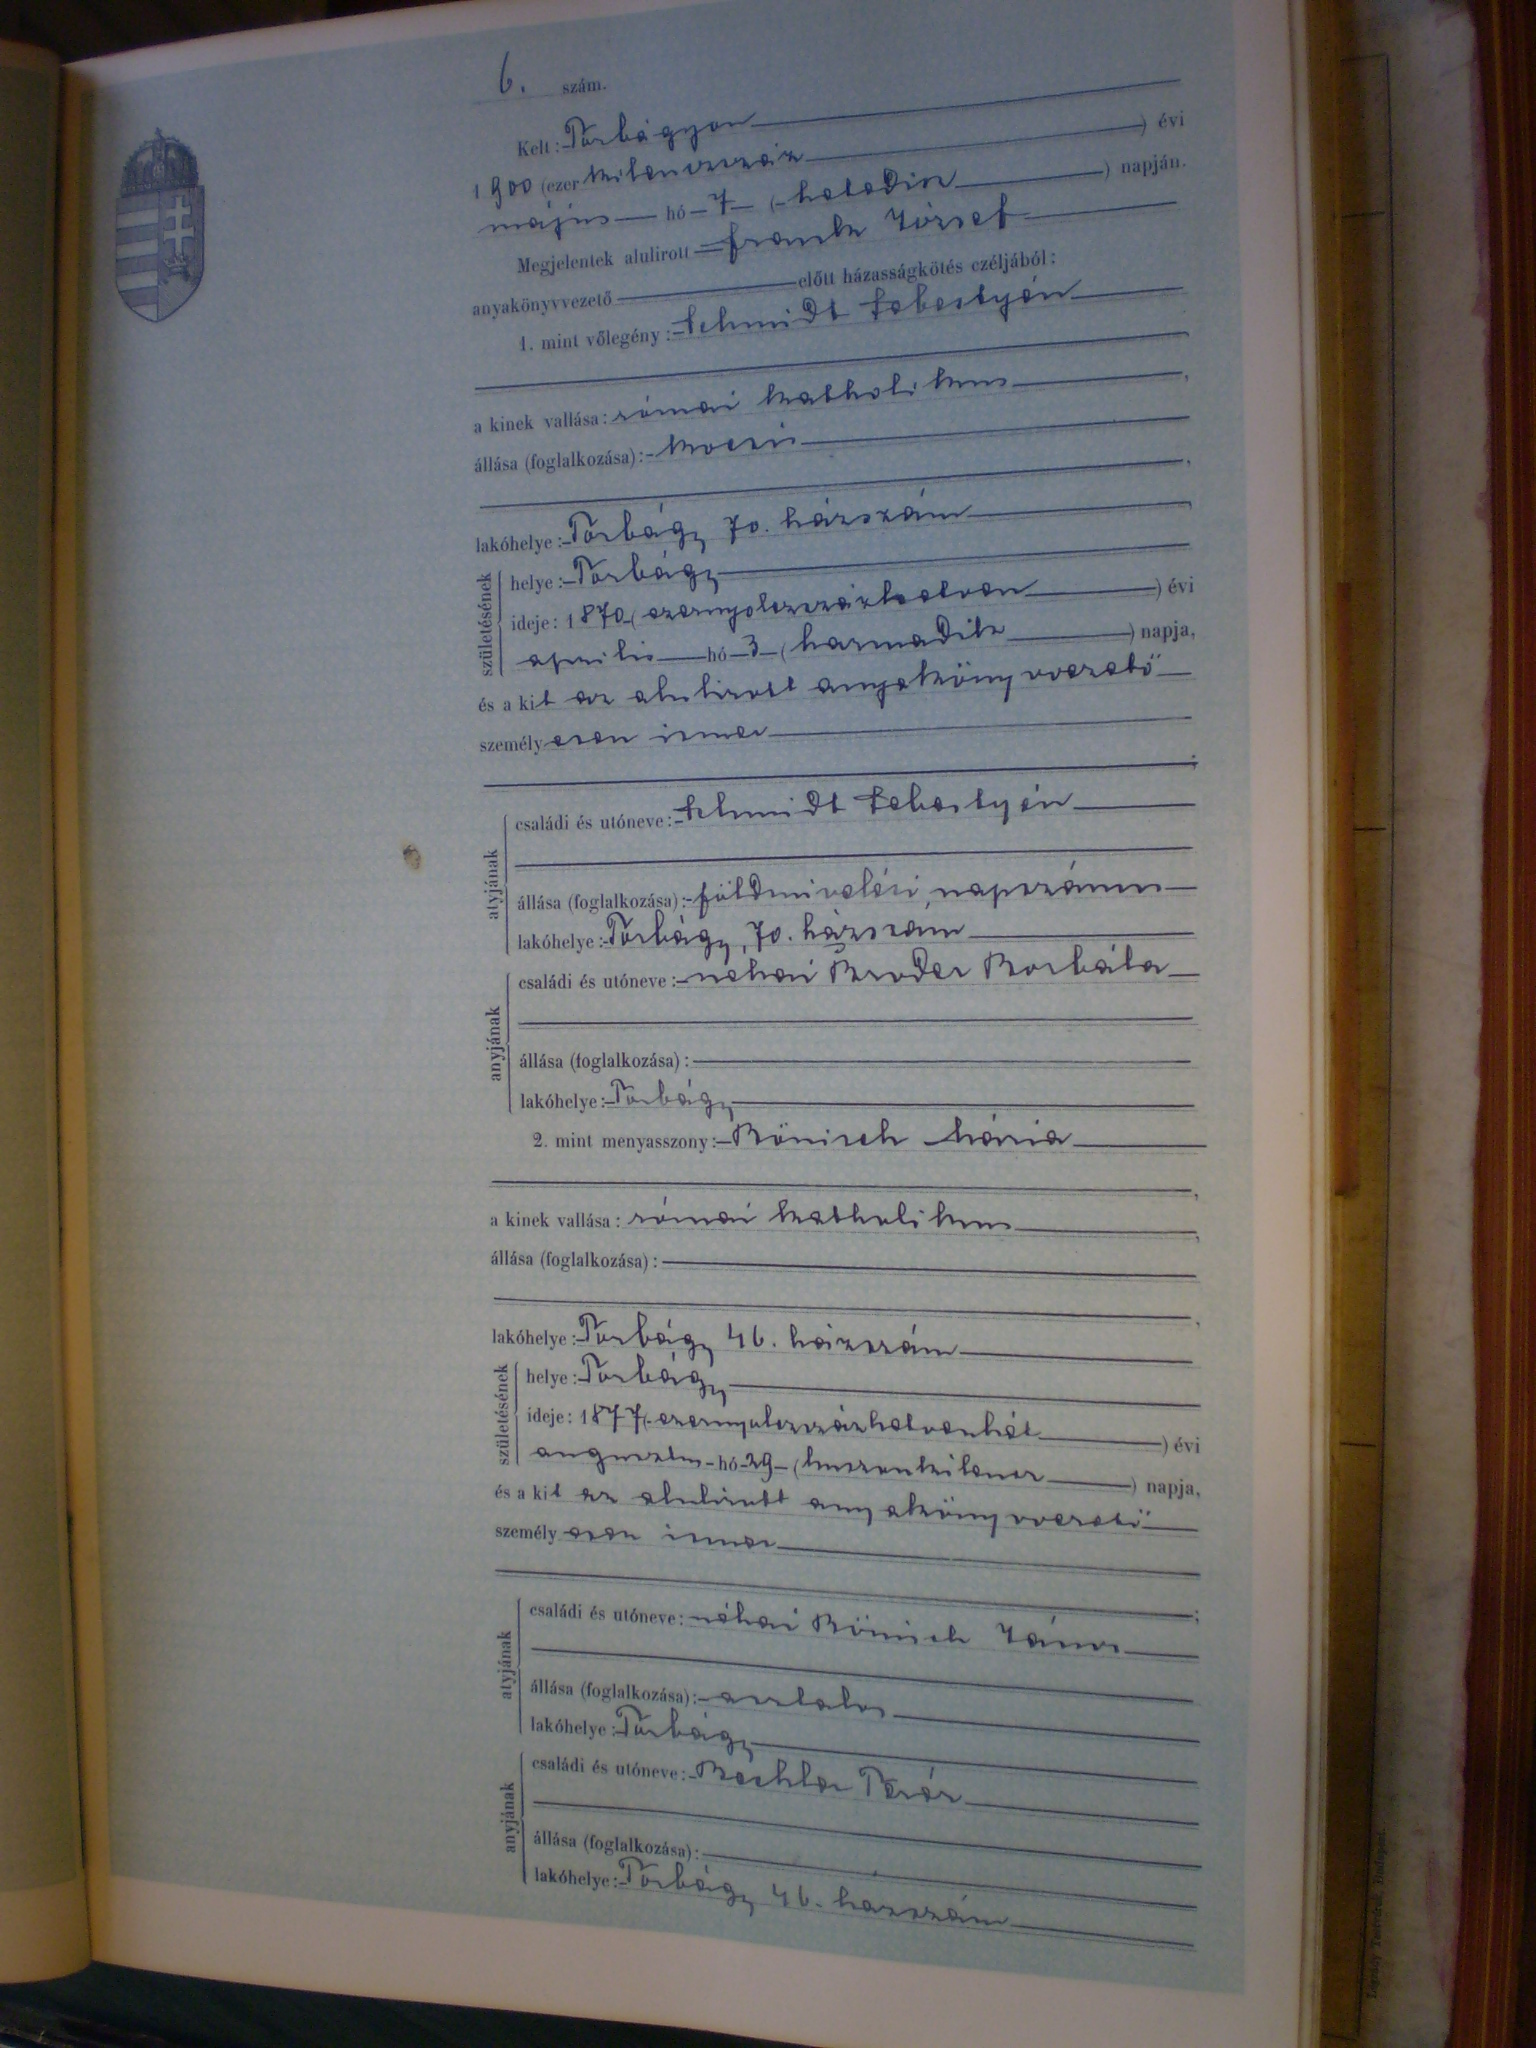 6. szám.
Kelt: Torbágyon
1900 (ezer kilenczszáz ) évi
május hó 7 ( hetedik ) napján.
Megjelentek alulirott Frank József
anyakönyvvezető előtt házasságkötés czéljából:
1. mint vőlegény: Schmidt Sebestyén
a kinek vallása: római katholikus ,
állása (foglalkozása): kocsis
,
lakóhelye: Torbágy 70. házszám ,
születésének
helye: Torbágy
ideje: 1870 ( ezernyolczszázhetven ) évi
április hó 3 ( harmadik ) napja,
és a kit az alulirott anyakönyvvezető
személyesen ismer
;
atyjának
családi és utóneve: Schmidt Sebestyén
állása (foglalkozása): földmivelési napszámos
lakóhelye: Torbágy, 70. házszám
anyjának
családi és utóneve: néhai Broder Borbála
állása (foglalkozása):
lakóhelye: Torbágy
2. mint menyasszony: Bönisch Mária
,
a kinek vallása: római katholikus ,
állása (foglalkozása):
,
lakóhelye: Torbágy 46. házszám
születésének
helye: Torbágy
ideje: 1877 ( ezernyolczszázhetvenhét ) évi
augusztus hó 29 ( huszonkilencz ) napja,
és a kit az alulirott anyakönyvvezető
személyesen ismer
;
atyjának
családi és utóneve: néhai Bönisch János
állása (foglalkozása): asztalos
lakóhelye: Torbágy
anyjának
családi és utóneve: Teréz
állása (foglalkozása):
lakóhelye: Torbágy 46. házszám